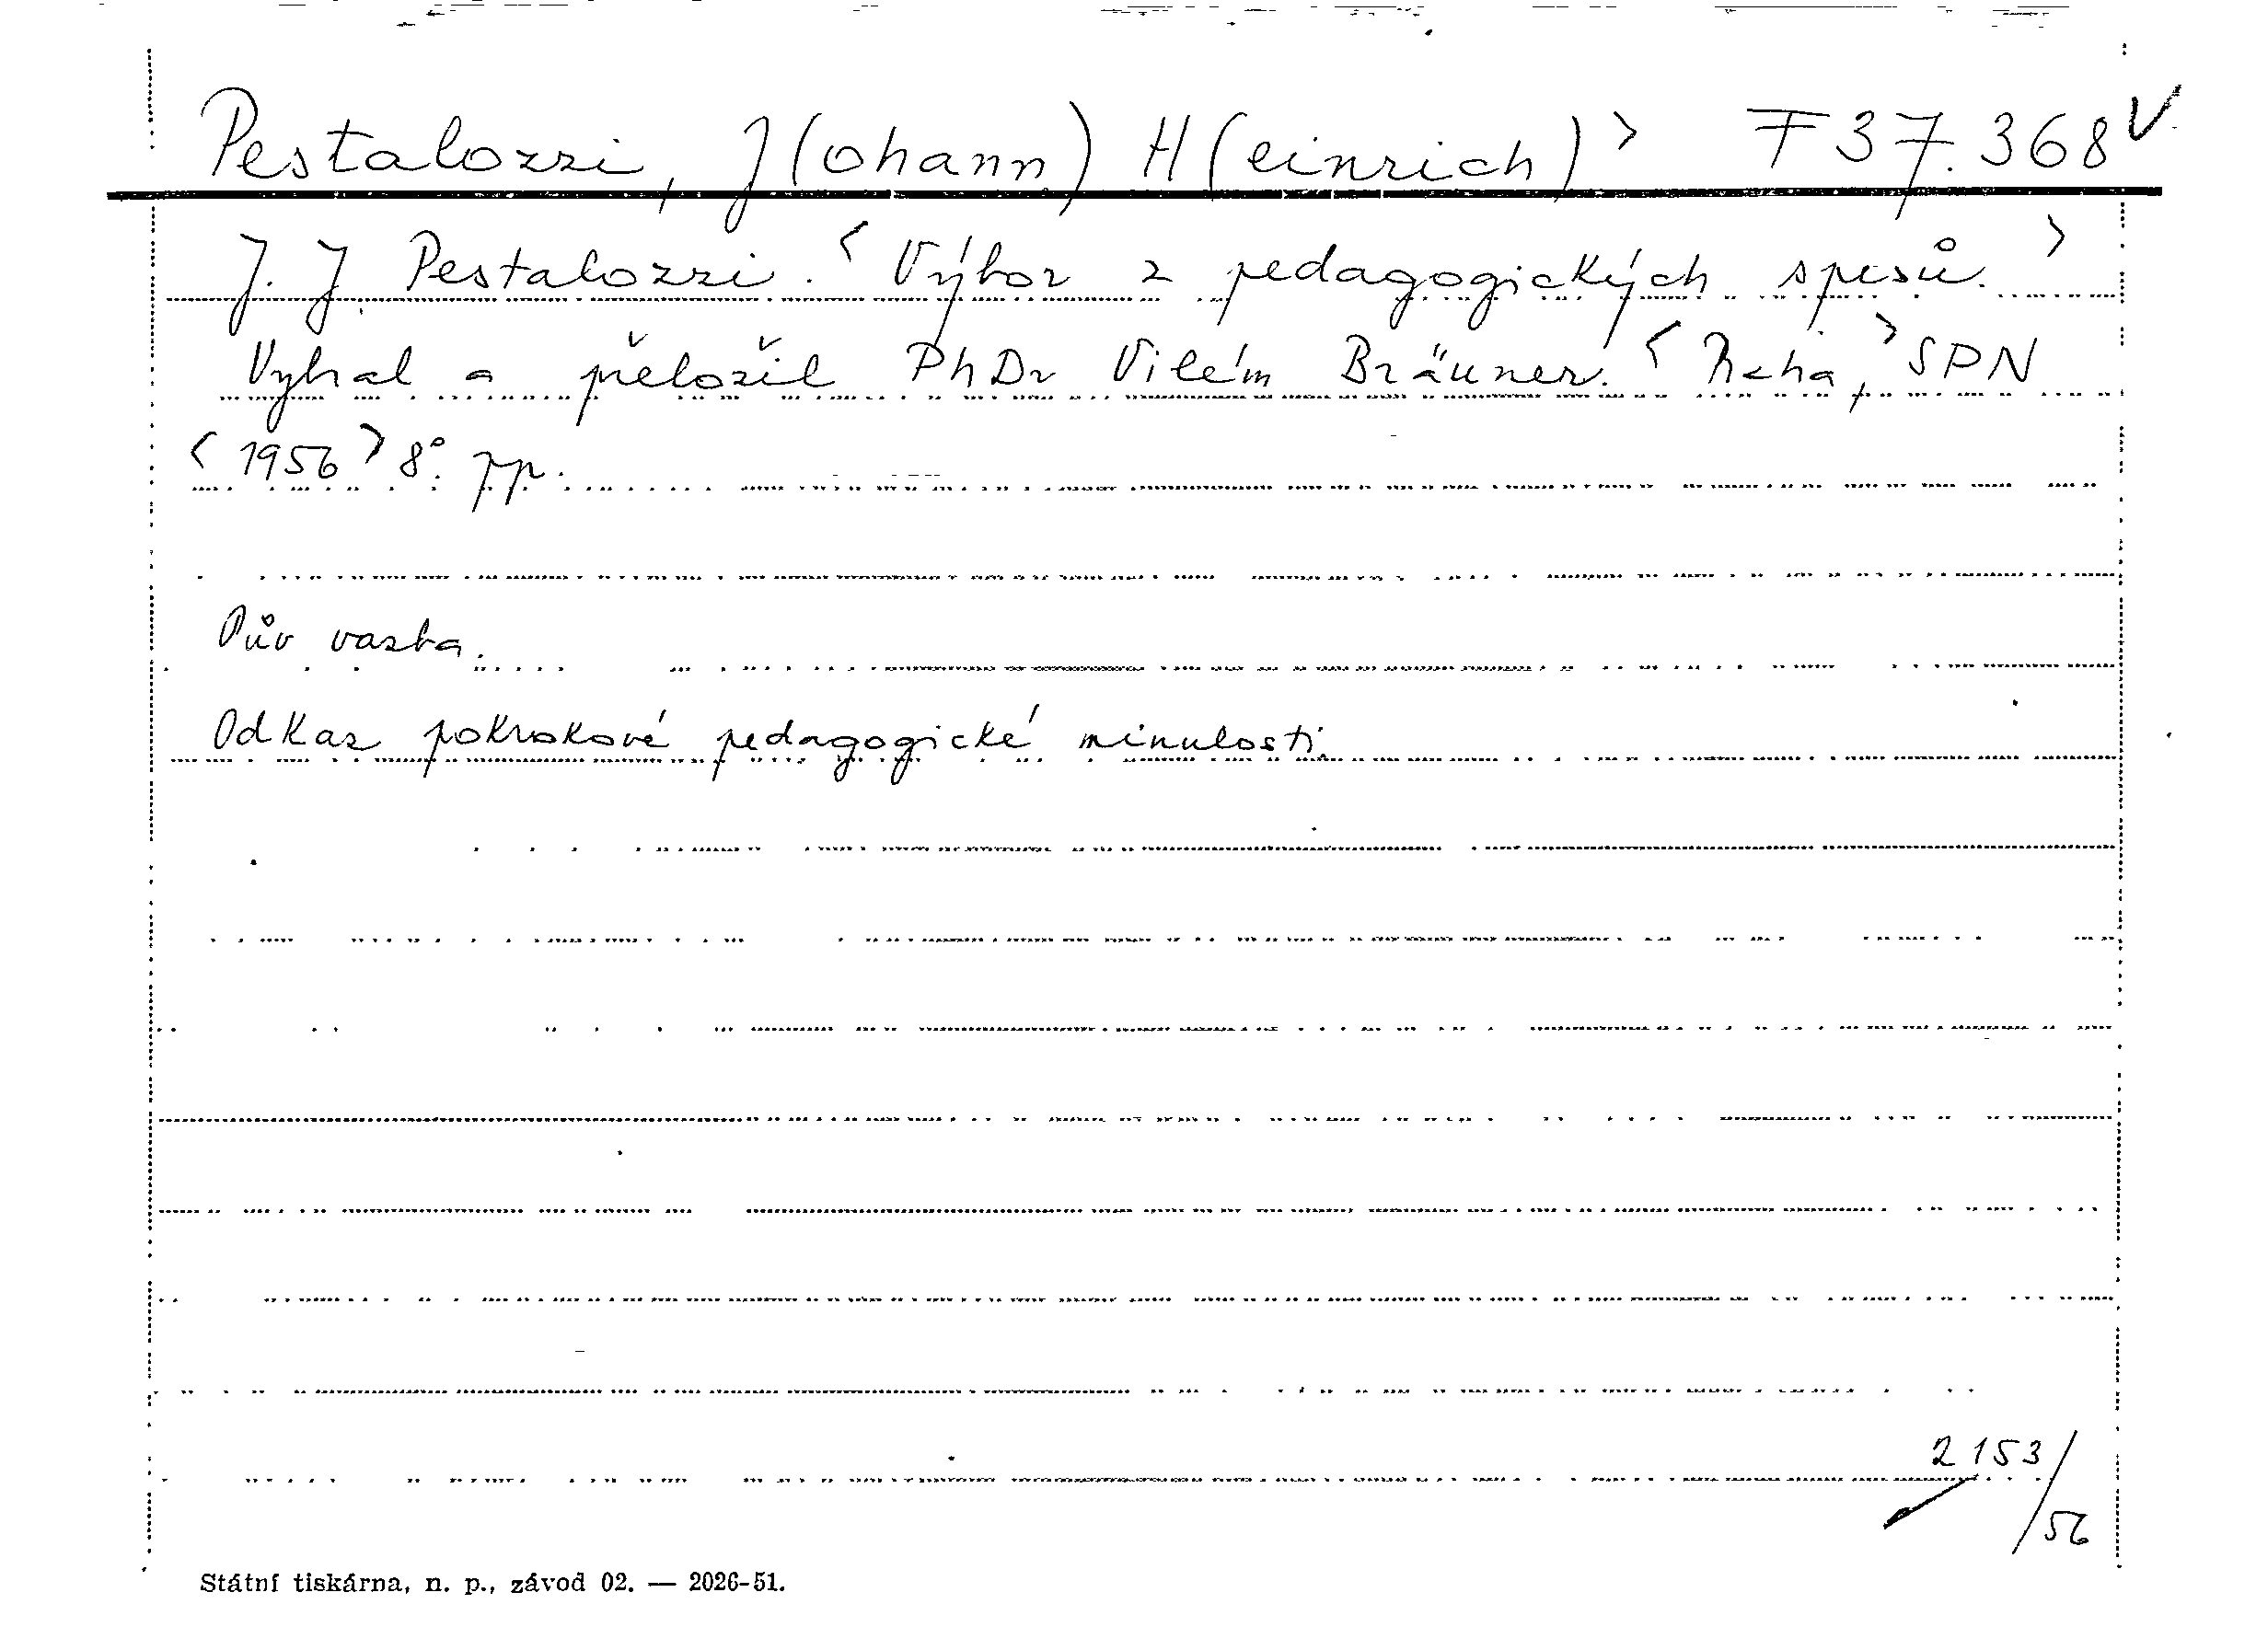 Pestalozzi, J(ohann) H(einrich)> F 37.368 V
J. J. Pestalozzi. <Výbor z pedagogických spisů.>
Vybral a přeložil PhDr Vilém Bräuner. <Praha,> SPN
<1956> 8°. pp.
Pův vazba.
Odkaz pokrokové pedagogické minulosti.
2153/56
Státní tiskárna, n. p., závod 02. — 2026-51.